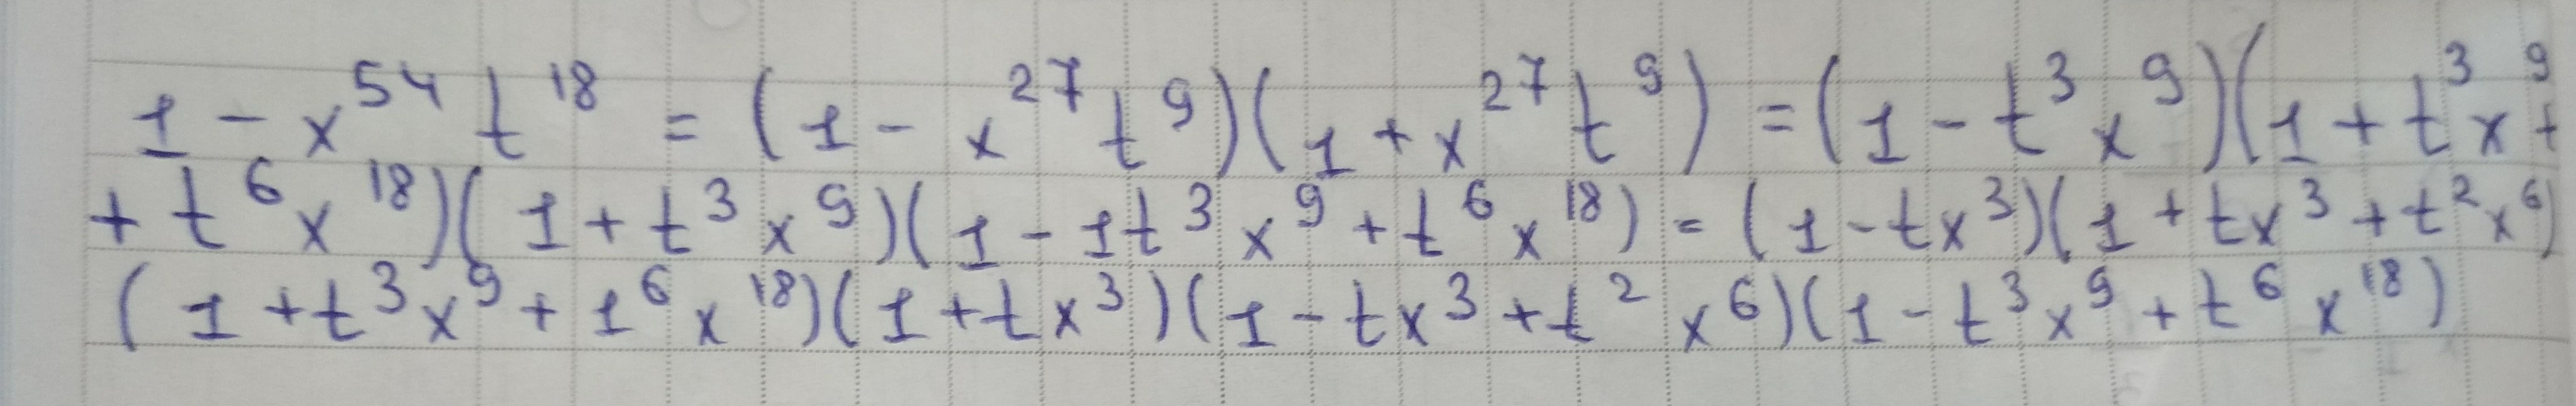 1 - x^54 t^18 = (1 - x^27 t^9)(1 + x^27 t^9) = (1 - t^3 x^9)(1 + t^3 x^9 +
+ t^6 x^18)(1 + t^3 x^9)(1 - 1t^3 x^9 + t^6 x^18) = (1 - tx^3)(1 + tx^3 + t^2 x^6)
(1 + t^3 x^9 + 1^6 x^18)(1 + tx^3)(1 - tx^3 + t^2 x^6)(1 - t^3 x^9 + t^6 x^18)